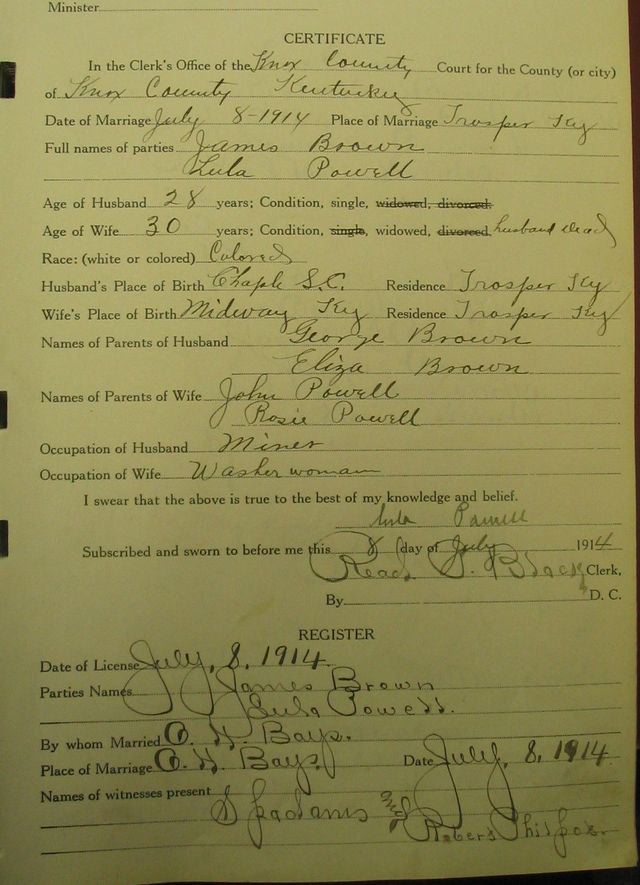 Minister
CERTIFICATE
In the Clerk's Office of the Knox County Court for the County (or city)
of Knox County Kentucky
Date of Marriage July 8-1914 Place of Marriage Trosper Ky
Full names of parties James Brown
Lula Powell
Age of Husband 28 years; Condition, single, widowed, divorced.
Age of Wife 30 years; Condition, single, widowed, divorced. husband dead
Race: (white or colored) Colored
Husband's Place of Birth Chaple S.C. Residence Trosper Ky
Wife's Place of Birth Midway Ky Residence Trosper Ky
Names of Parents of Husband George Brown
Eliza Brown
Names of Parents of Wife John Powell
Rosie Powell
Occupation of Husband Miner
Occupation of Wife Washer woman
I swear that the above is true to the best of my knowledge and belief.
Lula Powell
Subscribed and sworn to before me this 8 day of July 1914
Read P. Black Clerk,
By D. C.
REGISTER
Date of License July, 8, 1914
Parties Names James Brown
Lula Powell.
By whom Married O. H. Bays.
Place of Marriage O. H. Bays. Date July, 8, 1914
Names of witnesses present
and
Robert Philpot.